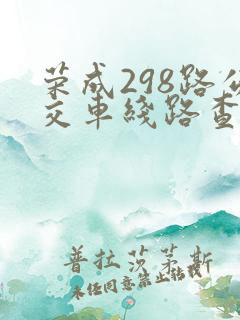 荣成298路公
交车线路查
普拉莎茅斯
未经同意禁止转载